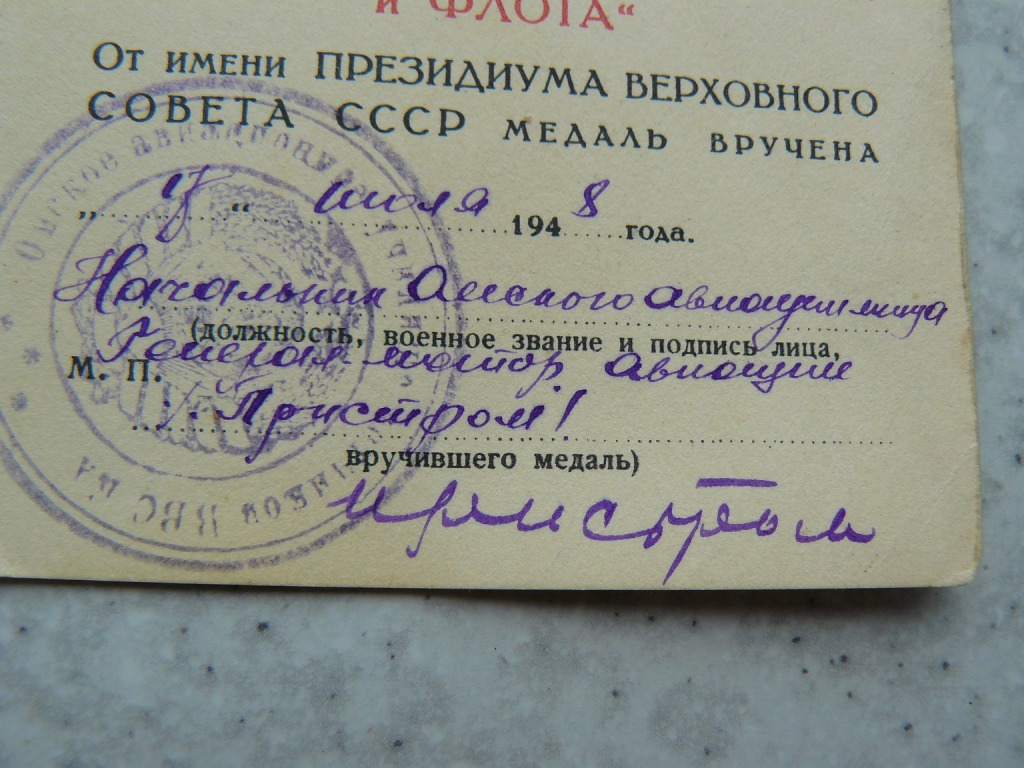 и ФЛОТА“
От имени ПРЕЗИДИУМА ВЕРХОВНОГО
СОВЕТА СССР МЕДАЛЬ ВРУЧЕНА
„ “ июля 1948 года.
Начальник Омского авиаучилища
(должность, военное звание и подпись лица,
Генерал-майор авиации
М. П.
/Пристром/
вручившего медаль)
Пристром
Омское ВВС